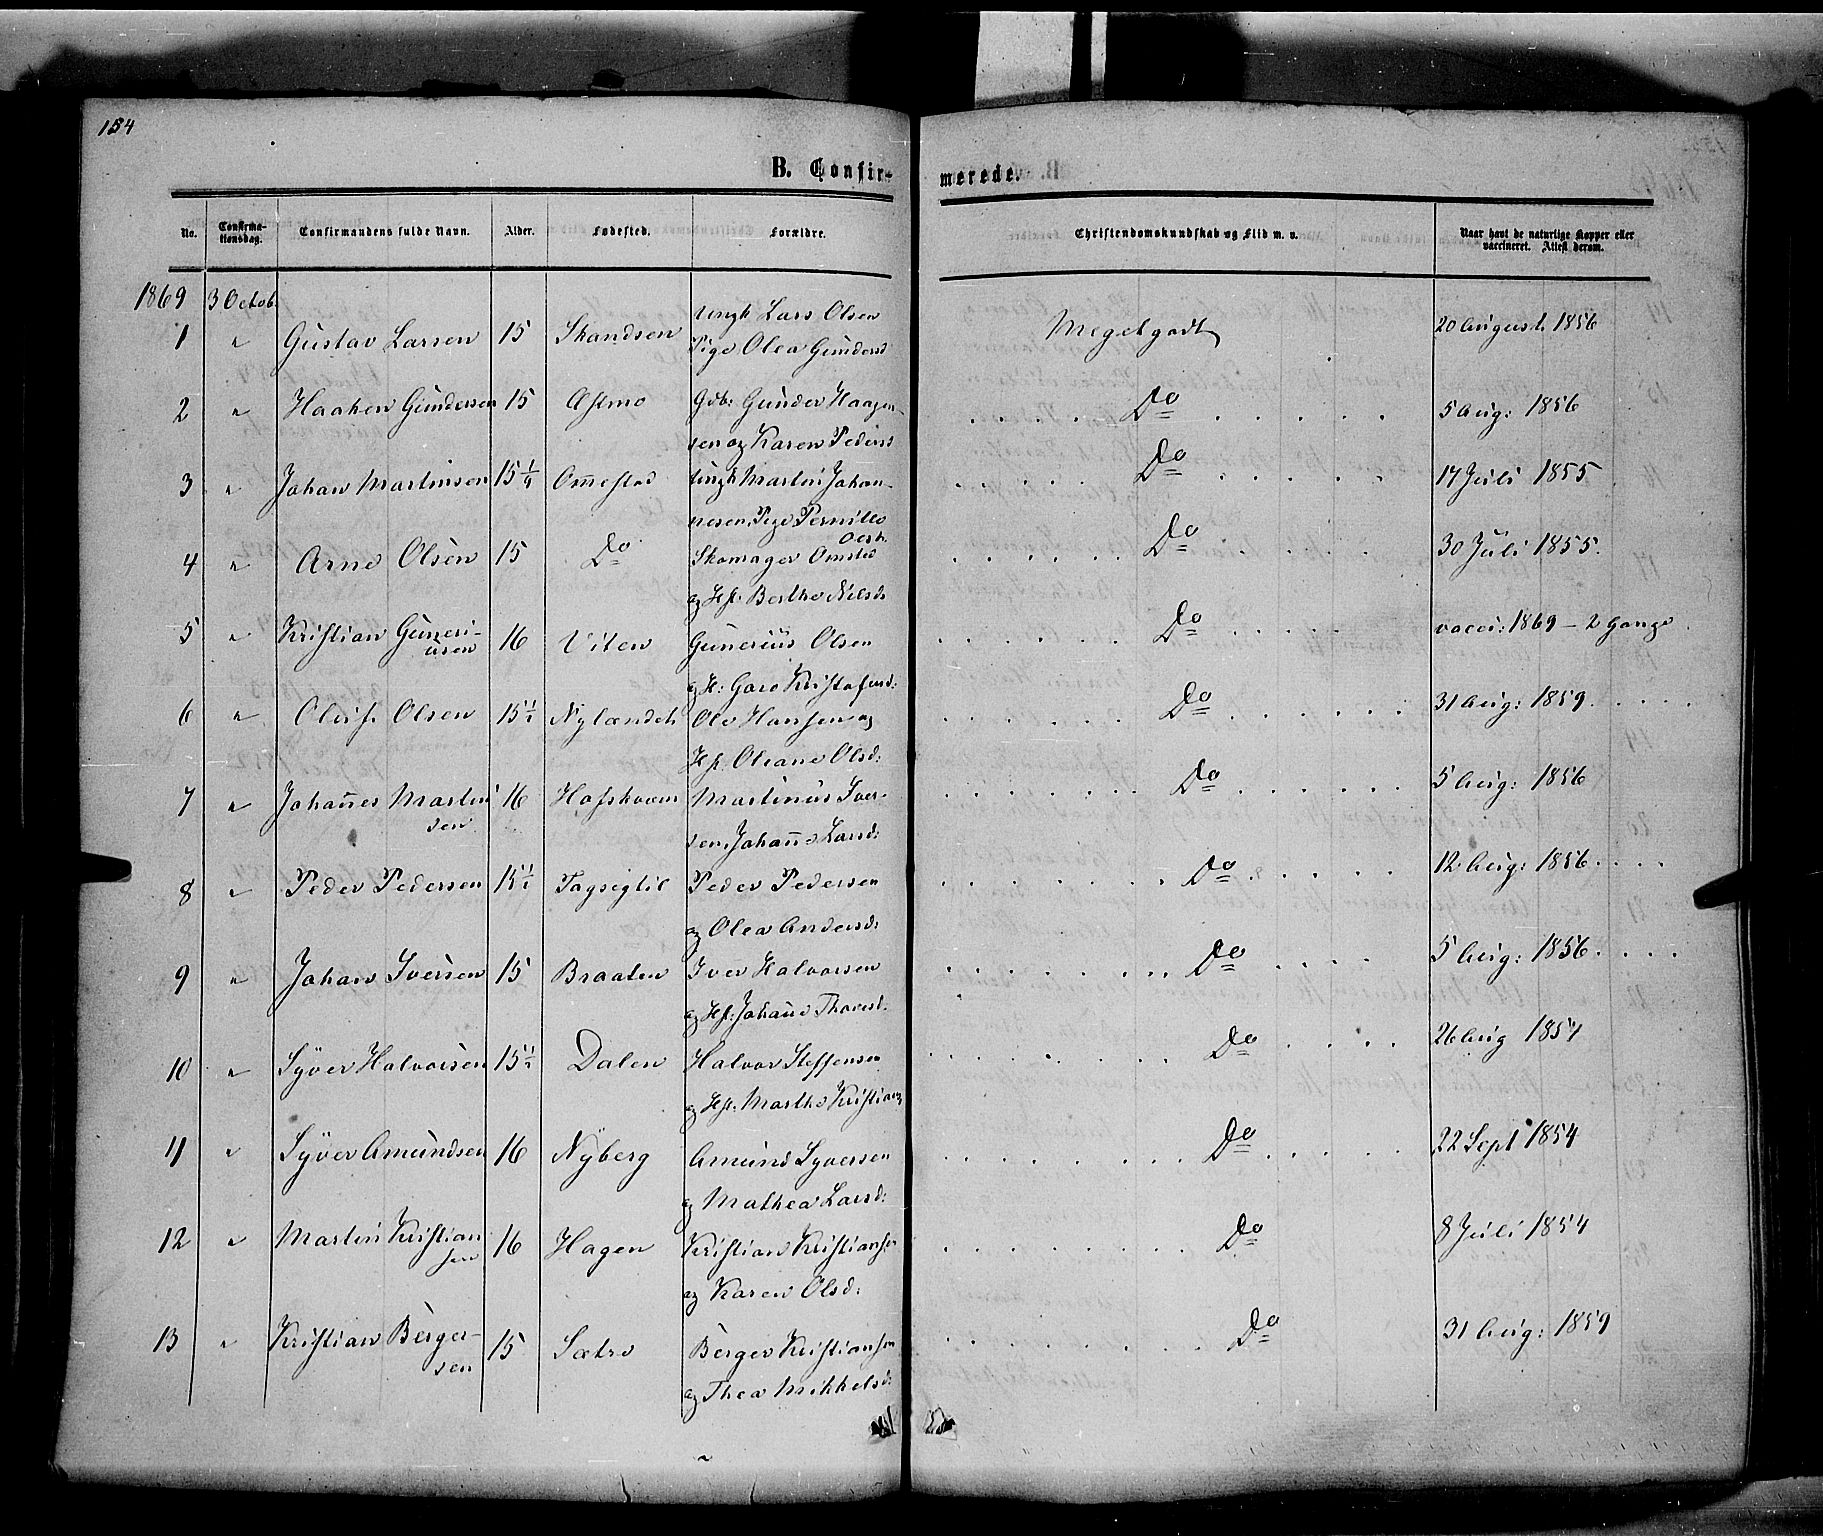 154
B. Confir-
merede.
No. Confirma-
tionsdag. Confirmandens fulde Navn. Alder. Fødested. Forældre. Christendomskundskab og Flid m. v. Naar havt de naturlige Kopper eller
vaccineret. Attest derom.
1869 3 Octob.
Ungk Lars Olsen
1 " Gustav Larsen 15 Skandsen Pige Olea Gundersd Meget godt 20 August 1856
2 " Haaken Gundersen 15 Gdb: Gunder Haagen- Do 5 Aug: 1856
sen og Karen Pedersd
3 " Johan Martinsen 15 1/4 Ommestad Ungk Martin Johan- Do 17 Juli 1855
nesen, Pige Pernille
4 " Arne Olsen 15 Do Skomager Do 30 Juli 1855.
og Hst: Berthe Nilsd
5 " Kristian Guneri- 16 Viten Gunerius Olsen Do vacci: 1869 – 2 gange
usen
og H: Kristofersd:
6 " Oluf Olsen 15 1/2 Nylændet Ole Hansen og Do 31 Aug: 1859
Hst. Oleane Olsd:
7 " Johannes Martin 16 Martinus Iver- Do 5 Aug: 1856
sen
sen, Johanne Larsd:
8 " Peder Pedersen 15 1/2 Peder Pedersen Do 12. Aug: 1856
og Olea Andersd:
9 " Johan Iversen 15 Braaten Iver Halvorsen Do 5 Aug: 1856
og Hst: Johanne Thoresd.
10 " Syver Halvorsen 15 1/2 Dalen Halvor Steffensen Do 26 Aug 1854
og Hst. Marthe Kristians
11 " Syver Amundsen 16 Nyberg Amund Syversen Do 22 Sept 1854
og Mathea Larsd:
12 " Martin Kristian 16 Hagen Kristian Kristiansen Do 8 Juli 1854
sen
og Karen Olsd:
13 " Kristian Berger- 15 Sætre Berger Kristiansen Do 31 Aug: 1859
sen
og Thea Mikkelsd: